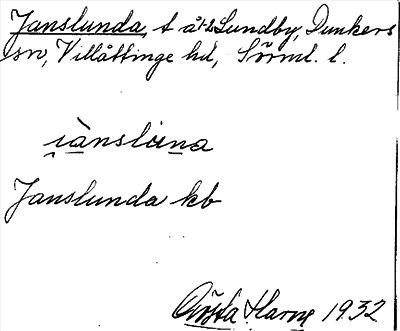 Janslunda, t å Lundby, Dunkers
sn, Villåttinge hd, Sörml. l.
i̯ànslu̇na
Janslunda kb
Gösta Harne 1932